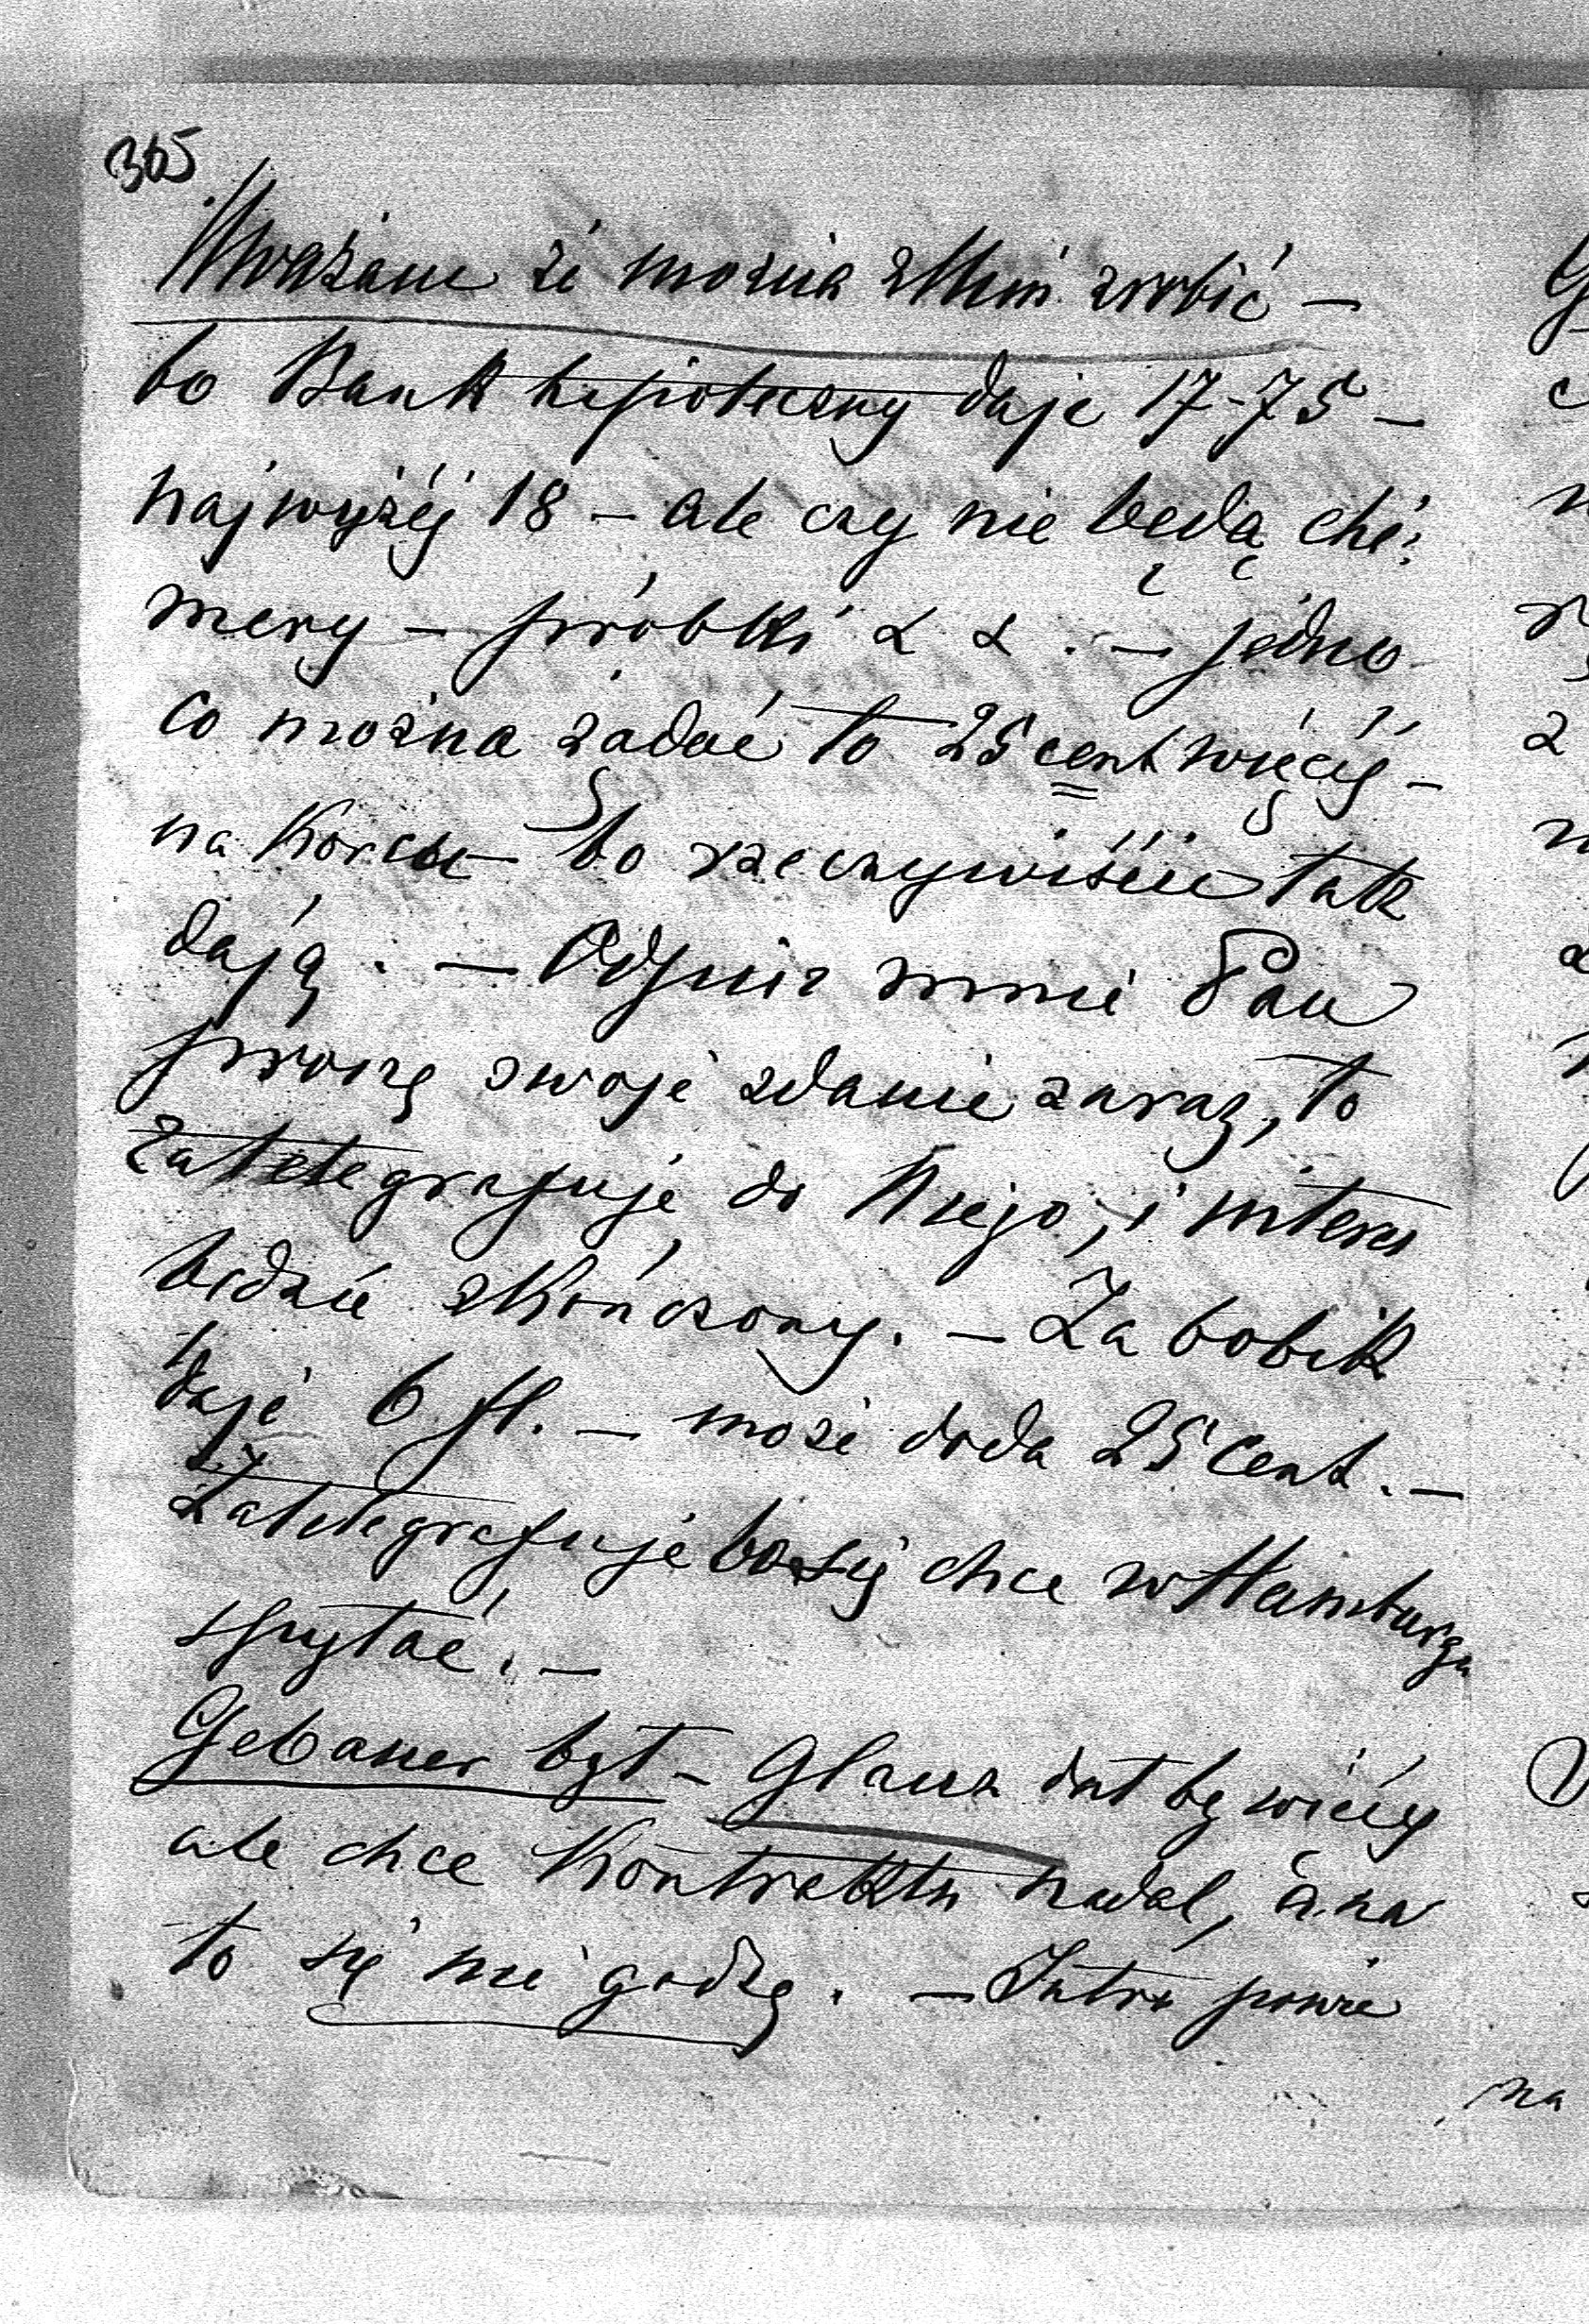 365
Uważam że można z Nim zrobić —
bo Bank hipoteczny daje 17-75 —
najwyżéj 18 — ale czy nie będą chi:
mery — próbki & & . — jedno
co można żądać to 25 cent więcéj —
na korcu — bo rzeczywiście tak
dają . — Odpisz mnie Pan
proszę swoje zdanie zaraz, to
zatelegrafuję do Niego, i interes
będzie skończony . — Za bobik
daje 6 fl. — może doda 25 cent . —
Zatelegrafuje bo się chce w Hamburgu
spytać . —
Gebauer był — Glanz dał by więcéj
ale chce kontraktu nadal, a na
to się nie godzę . — Jutro powie
na